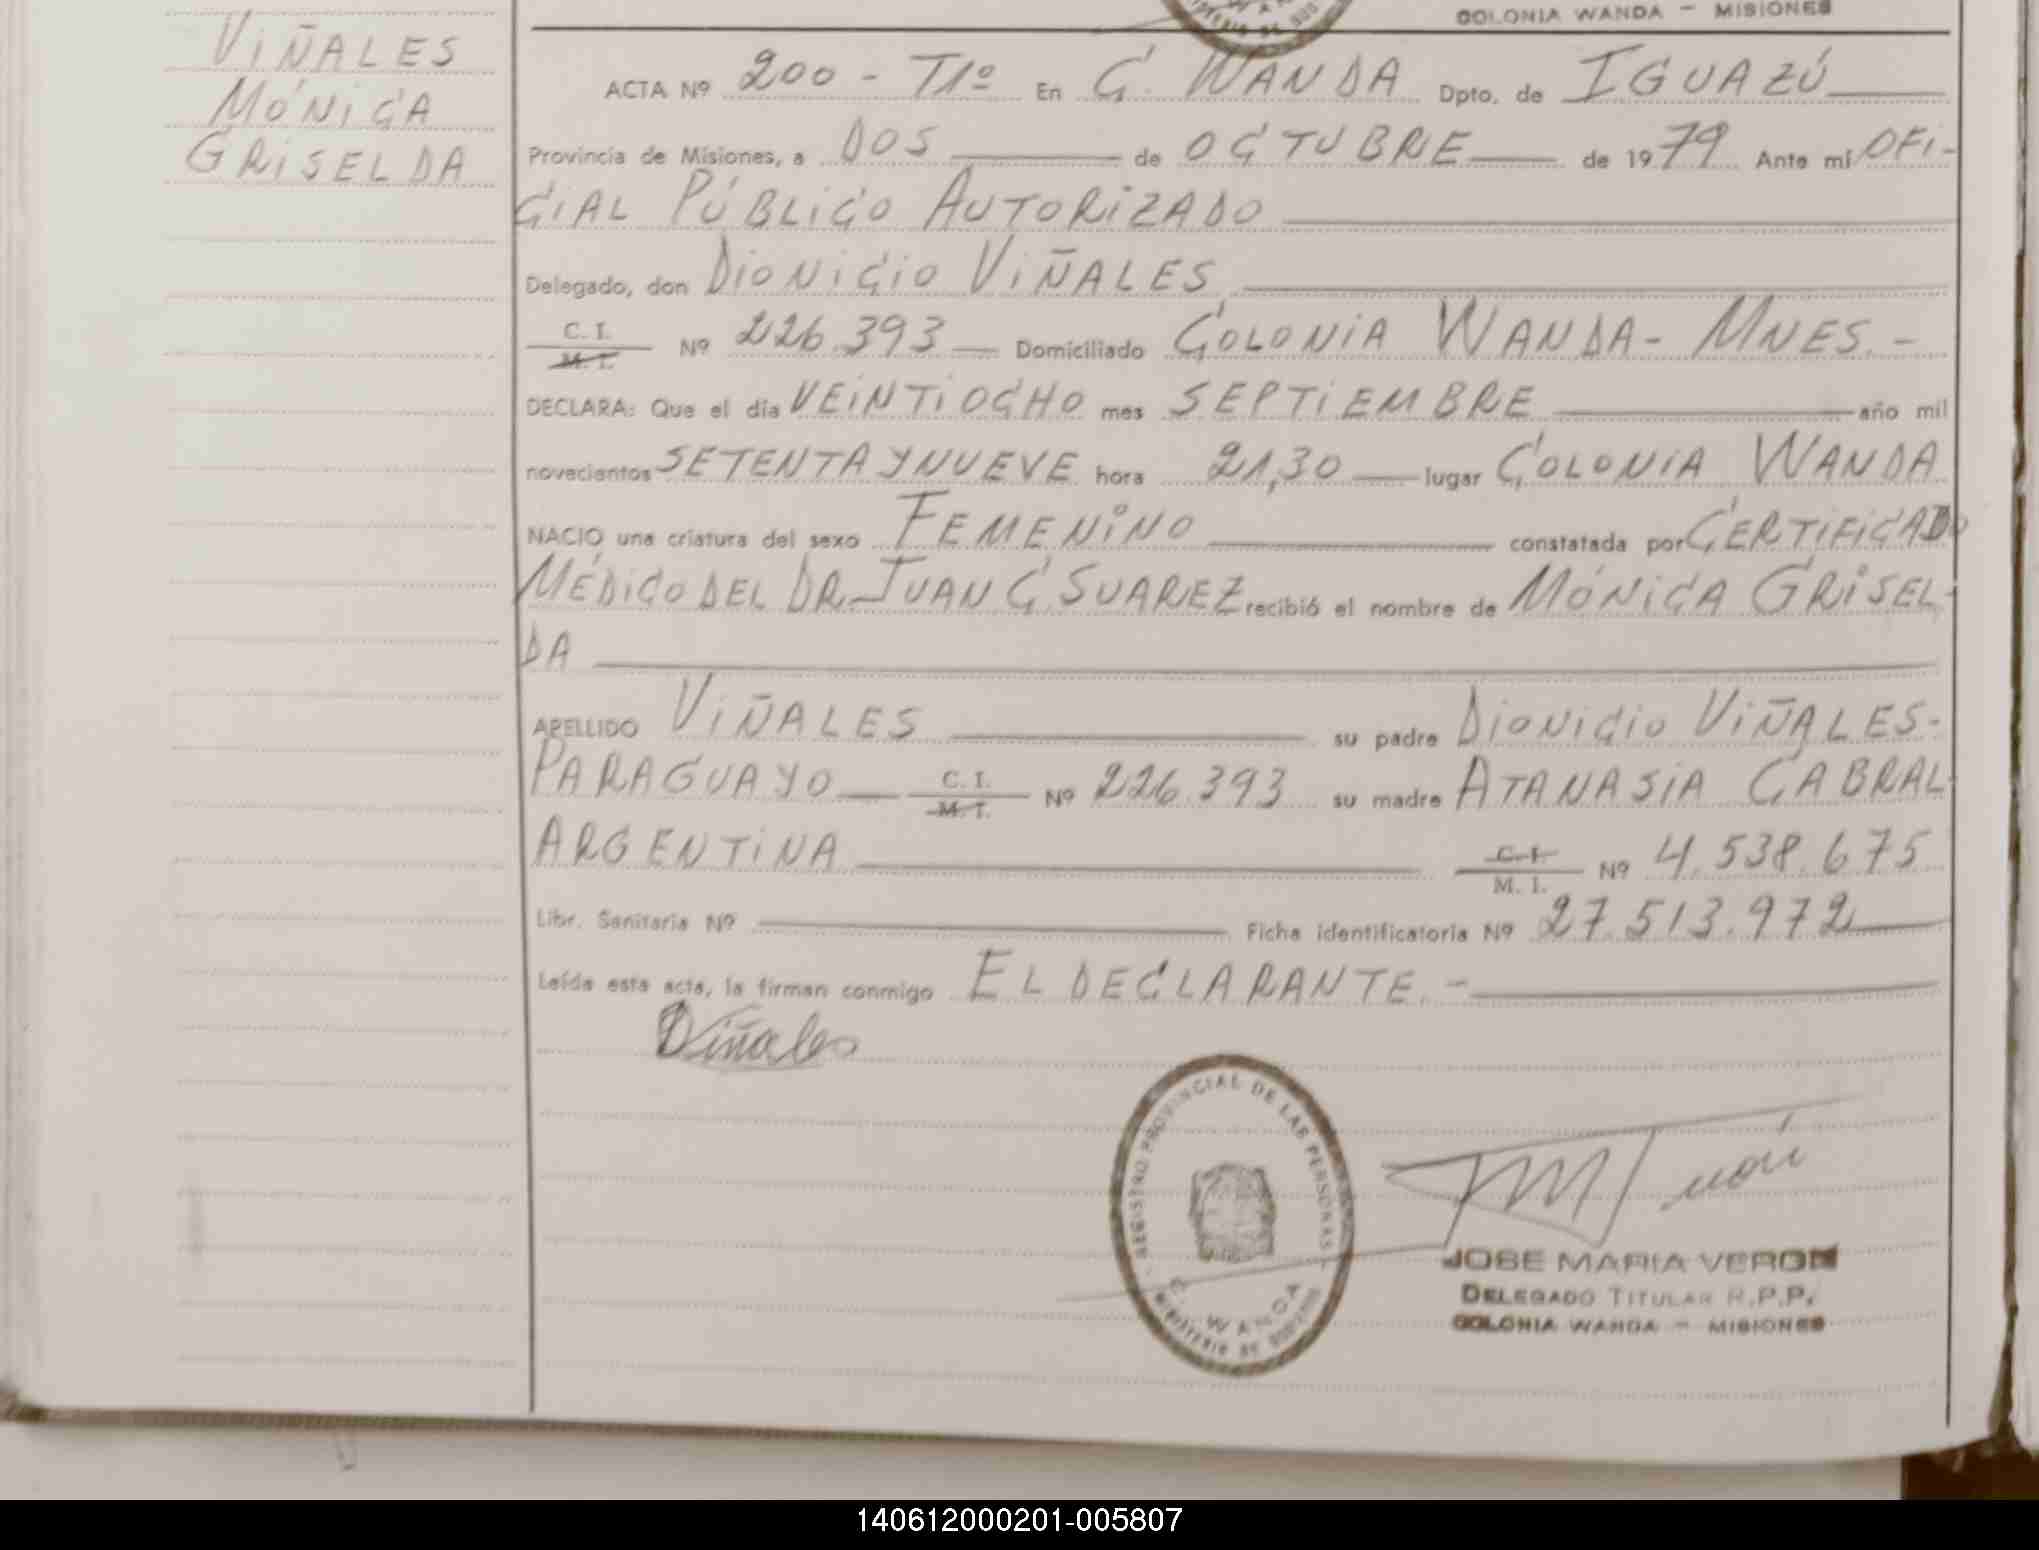 COLONIA WANDA - MISIONES
VIÑALES
MÓNICA
GRISELDA
ACTA Nº 200 - T1º En C. WANDA Dpto. de IGUAZÚ
Provincia de Misiones, a DOS de OCTUBRE de 1979 Ante mí OFI-
CIAL PÚBLICO AUTORIZADO
Delegado, don DIONICIO VIÑALES
C. I.
M. I. Nº 226.393 Domiciliado COLONIA WANDA - MNES. -
DECLARA: Que el día VEINTIOCHO mes SEPTIEMBRE año mil
novecientos SETENTA Y NUEVE hora 21,30 lugar COLONIA WANDA
NACIO una criatura del sexo FEMENINO constatada por CERTIFICADO
MÉDICO DEL DR. JUAN C SUAREZ recibió el nombre de MÓNICA GRISEL-
DA
APELLIDO VIÑALES su padre DIONICIO VIÑALES-
PARAGUAYO C. I. M. I. Nº 226.393 su madre ATANASIA CABRAL-
ARGENTINA C. I. M. I. Nº 4.538.675
Libr. Sanitaria Nº Ficha identificatoria Nº 27.513.972
Leída esta acta, la firman conmigo EL DECLARANTE. -
Viñales
REGISTRO PROVINCIAL DE LAS PERSONAS
C. WANDA
MINISTERIO DE GOBIERNO
JOSE MARIA VERON
DELEGADO TITULAR R.P.P.
COLONIA WANDA - MISIONES
140612000201-005807